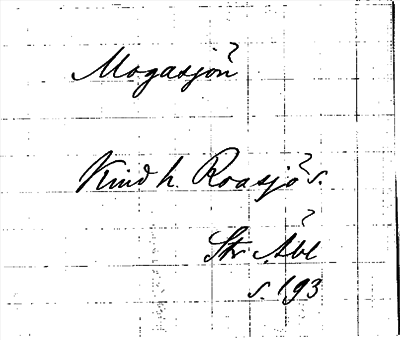 Mogasjön
Kind h. Roasjö s.
Str. Åbl
s. 193